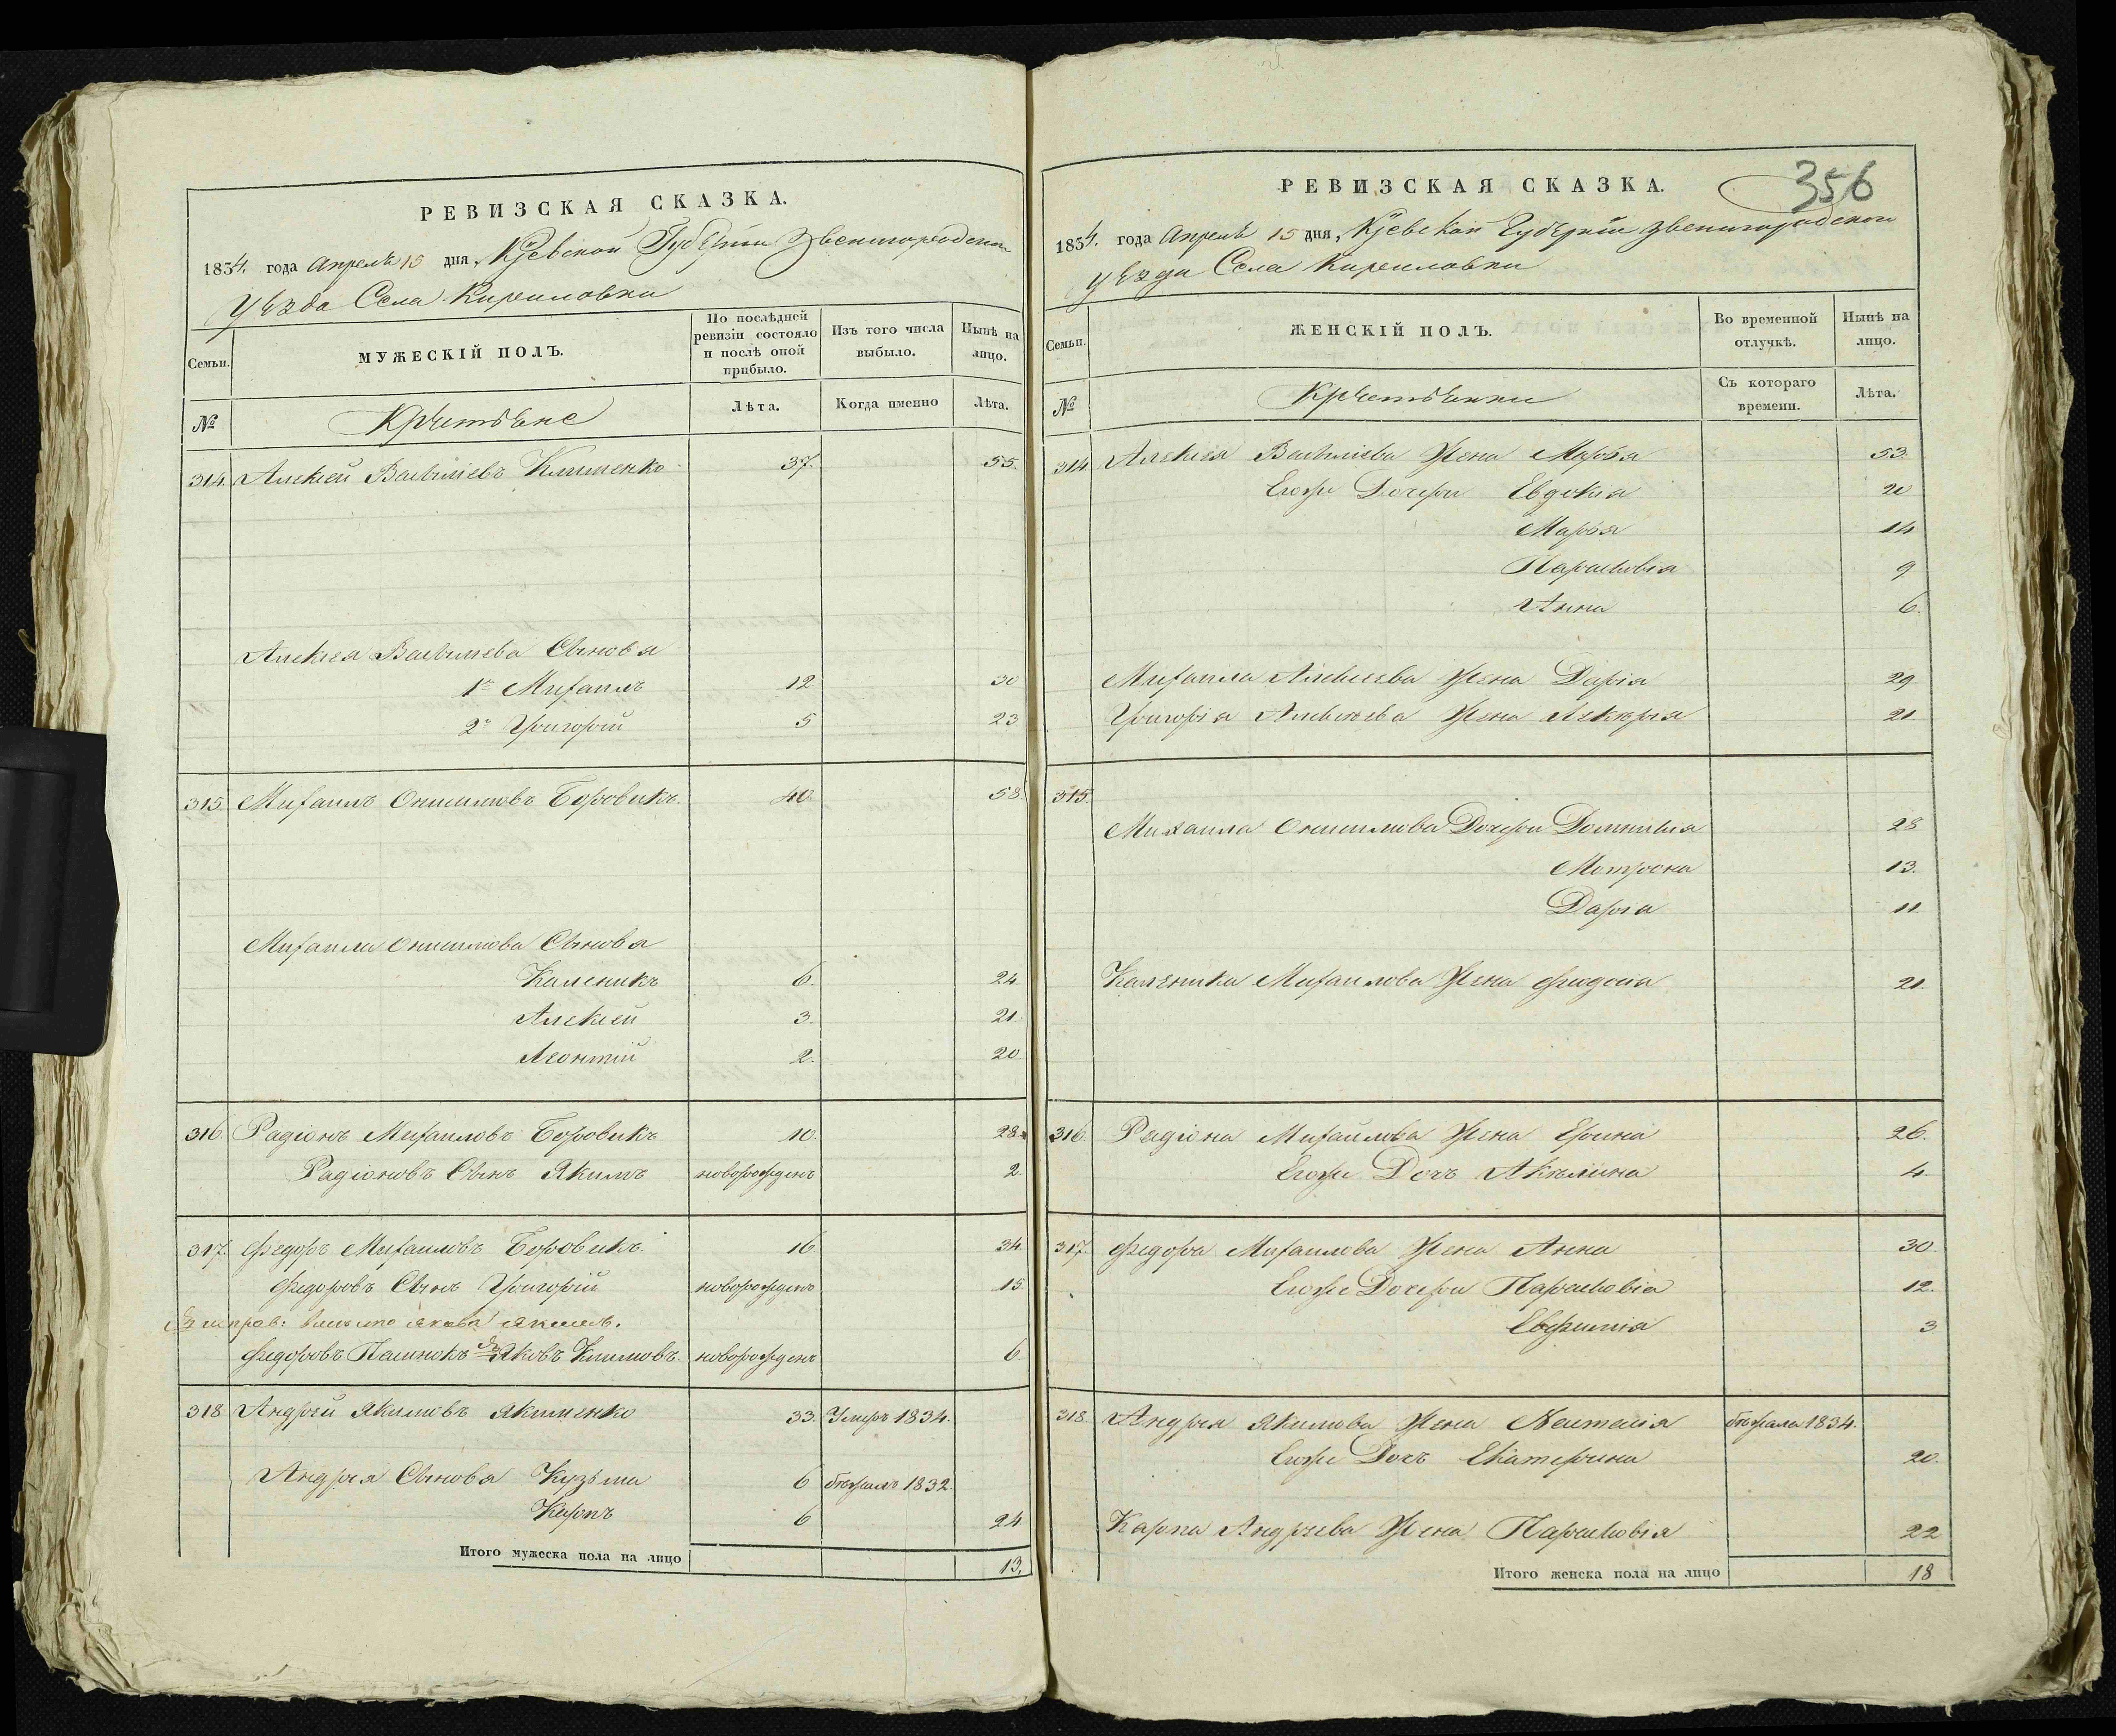 РЕВИЗСКАЯ СКАЗКА.
1834. года Апреля 15 дня, Кіевской Губерніи Звенигородскаго
уѣзда Села Кириловки
Семьи.
МУЖЕСКІЙ ПОЛЪ.
По послѣдней ревизіи состояло и послѣ оной прибыло.
Изъ того числа выбыло.
Нынѣ на лицо.
№
Крестьяне
Лѣта.
Когда именно
Лѣта.
314. Алексей Васильевъ Клименко 37. 55.
Алексея Васильева Сыновья
1й Михаилъ 12 30
2й Григорій 5 23
315. Михаилъ Онисимовъ Боровикъ. 40. 58.
Михаила Онисимова Сыновья
Каленикъ 6. 24
Алексей 3. 21
Леонтій 2. 20
316. Радіонъ Михаиловъ Боровикъ 10. 28.
Радіоновъ Сынъ Якимъ новорожденъ 2.
317. Федоръ Михаиловъ Боровикъ. 16 34.
Федоровъ Сынъ Григорій новорожденъ 15.
вместо Якова Якимъ.
Федоровъ Яковъ Климовъ. новорожденъ 6.
318 Андрей Якимовъ Якименко 33. Умеръ 1834.
Андрея Сыновья Кузьма 6 бежалъ 1832.
Карпъ 6 24
Итого мужеска пола на лицо 13.
356
РЕВИЗСКАЯ СКАЗКА.
1834. года Апреля 15 дня, Кіевской Губерніи Звенигородскаго
уѣзда Села Кириловки
Семьи.
ЖЕНСКІЙ ПОЛЪ.
Во временной отлучкѣ.
Нынѣ на лицо.
№
Крестьянки
Съ котораго времени.
Лѣта.
314 Алексея Васильева Жена Марья 53.
Егоже Дочери Евдокія 20
Марья 14
Парасковія 9
Анна 6.
Михаила Алексеева Жена Дарія 29
Григорія Алексеева Жена Лукерія 21
315.
Михаила Онисимова Дочери Домникія 28
Матрона 13.
Дарія 11
Каленика Михаилова Жена Феодосія 21.
316. Радіона Михайлова Жена Ерина 26.
Егоже Дочь Акилина 4
317. Федора Михаилова Жена Анна 30.
Егоже Дочери Парасковіа 12.
Евфимія 3
318. Андрея Якимова Жена Настасія бежала 1834.
Егоже Дочь Екатерина 20.
Карпа Андреева Жена Парасковія 22
Итого женска пола на лицо 18